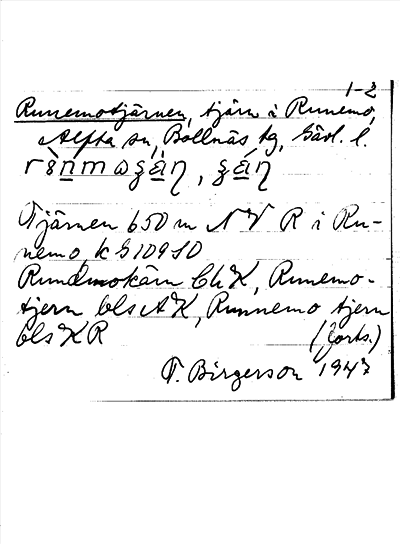 1-2
Runemotjärnen, tjärn i Runemo,
Alfta sn, Bollnäs tg, Gävl. l.
Tjärnen 650 m NV R i Ru-
nemo, k G109 SO
Rundmokärn ChK, Runemo-
tjern bls AK, Runnemo tjern
bls KR (forts.)
T. Birgerson 1947